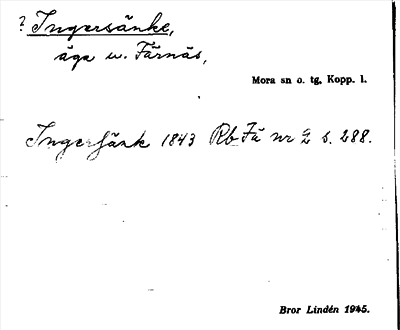 ? Ingersänke,
äga u. Färnäs,
Mora sn o. tg, Kopp. l.
Ingersänk 1843 Rb Fä nr 2 s. 288.
Bror Lindén 1945.